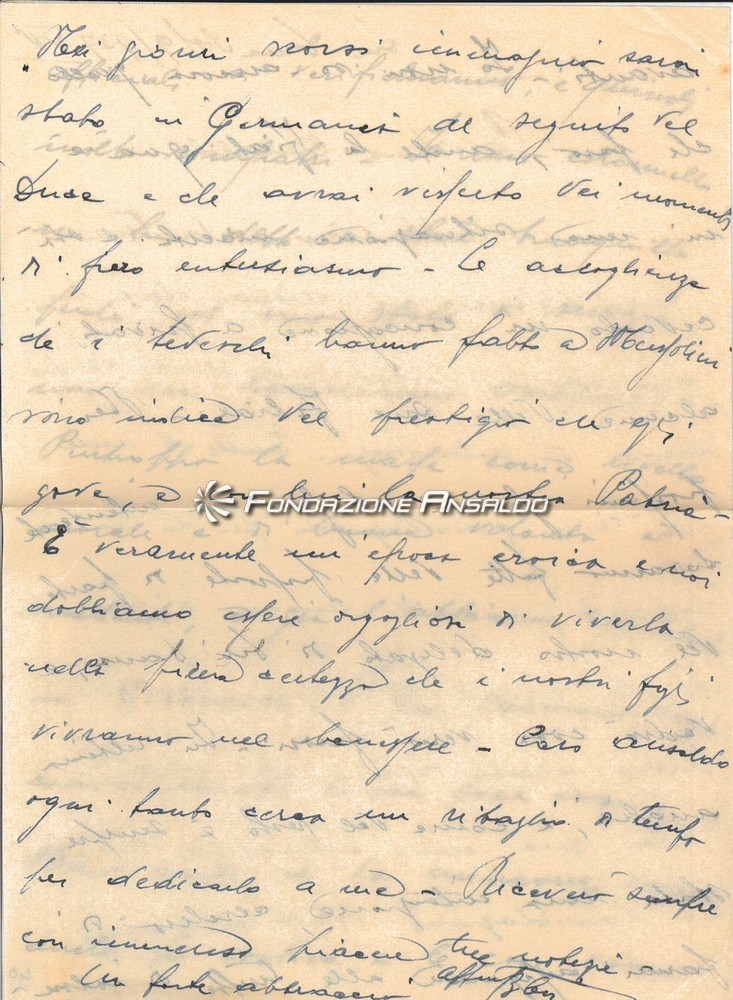 Nei giorni scorsi immagino sarai
stato in Germania al seguito del
Duce e che avrai vissuto dei momenti
di fiero entusiasmo - Le accoglienze
che i tedeschi hanno fatto a Mussolini
sono indice del prestigio che egli
gode, e con lui la nostra Patria -
FONDAZIONE ANSALDO
È veramente un'epoca eroica e noi
dobbiamo essere orgogliosi di viverla
nella fiera certezza che i nostri figli
vivranno nel benessere - Caro Ansaldo
ogni tanto cerca un ritaglio di tempo
per dedicarlo a me - Riceverò sempre
con immenso piacere tue notizie -
Un forte abbraccio